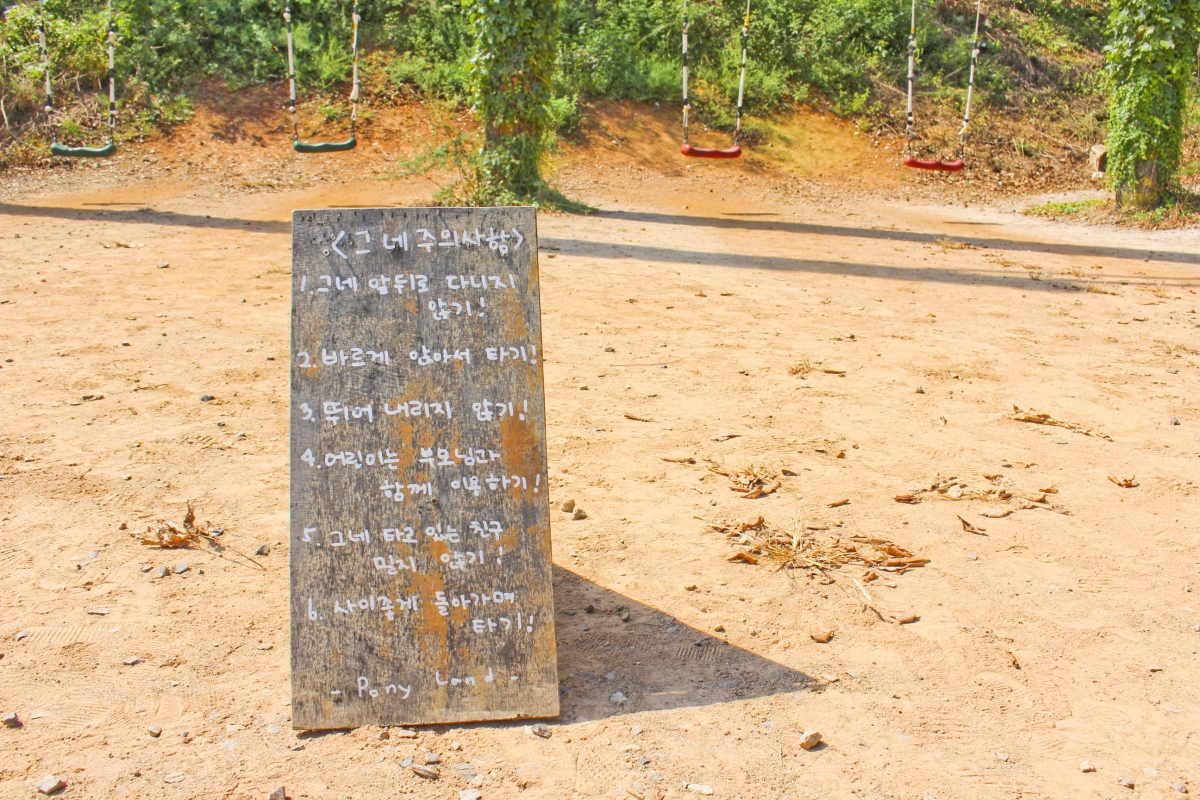 <그네 주의사항>
1. 그네 앞뒤로 다니지
않기!
2. 바르게 앉아서 타기!
3. 뛰어 내리지 않기!
4. 어린이는 부모님과
함께 이용하기!
5. 그네 타고 있는 친구
밀지 않기!
6. 사이좋게 돌아가며
타기!
- Pony Land -